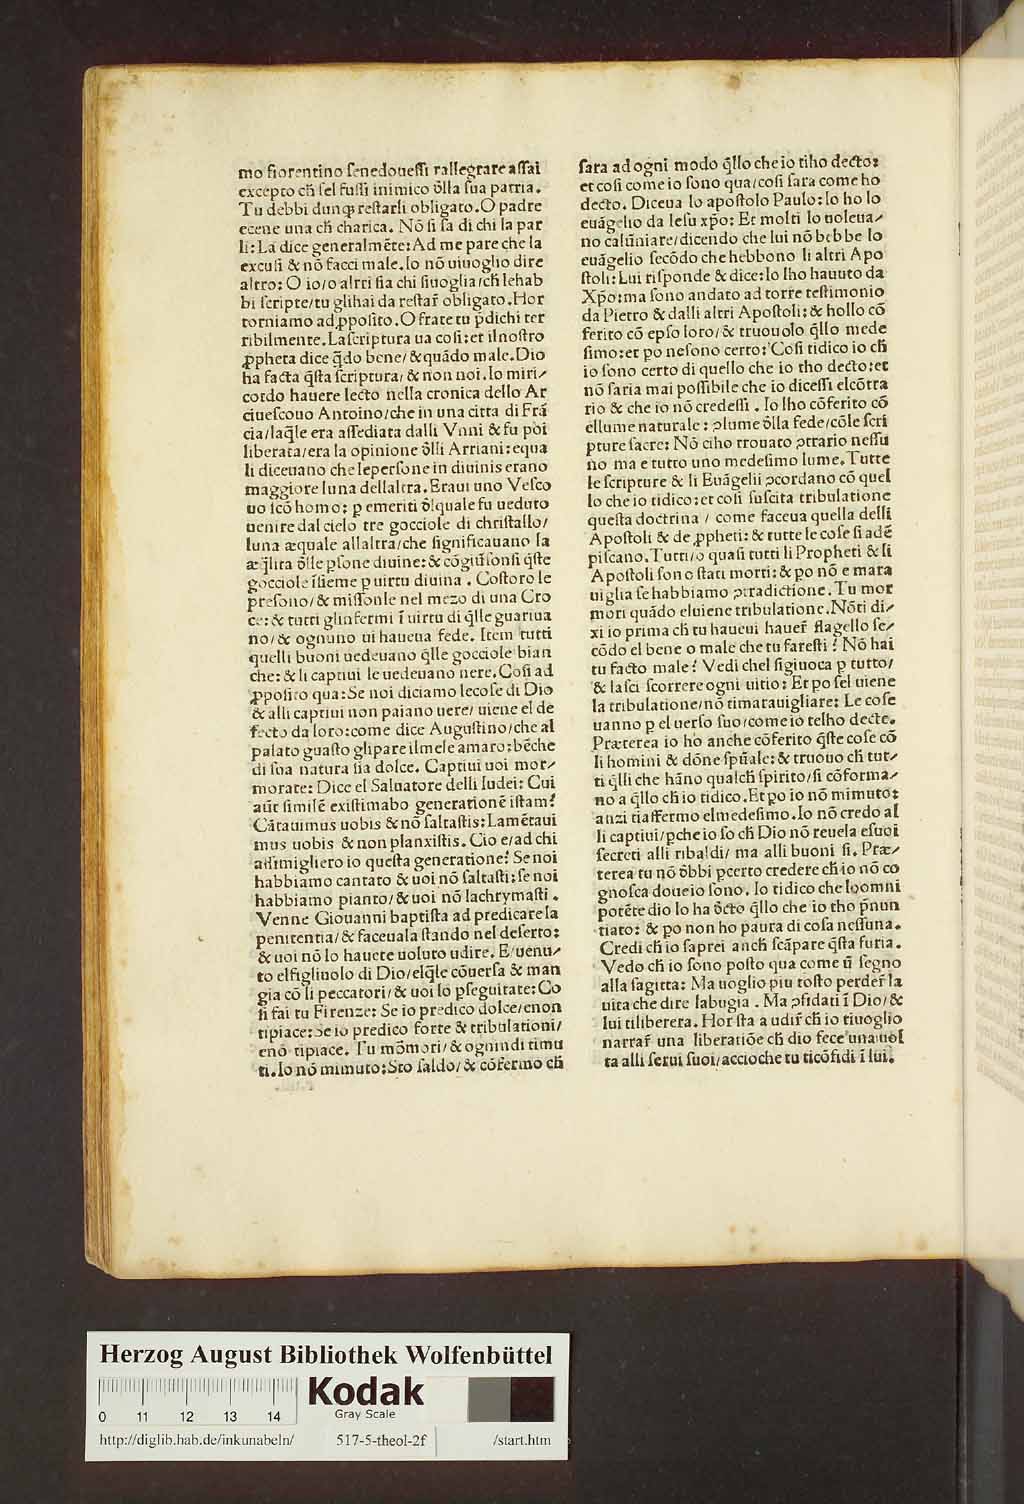 mo fiorentino ſenedoueſſi rallegrare aſſai
excepto ch̃ ſel fuſſi inimico d̃lla ſua patria.
Tu debbi dunqꝫ reſtarli obligato. O padre
ecene una ch̃ charica. Nõ ſi ſa di chi la par
li: La dice generalmẽte: Ad me pare che la
excuſi & nõ facci male. Io nõ uiuoglio dire
altro: O io/o altri ſia chi ſiuoglia/ch̃ lehab
bi ſcripte/tu glihai da reſtar̃ obligato. Hor
torniamo ad ꝓpoſito. O frate tu p̃dichi ter
ribilmente. Laſcriptura ua coſi: et ilnoſtro
ꝓpheta dice q̃do bene/ & quãdo male. Dio
ha facta q̃ſta ſcriptura/ & non noi. Io miri/
cordo hauere lecto nella cronica dello Ar
ciueſcouo Antoino/che in una citta di Frã
cia/laq̃le era aſſediata dalli Vnni & fu poi
liberata/era la opinione d̃lli Arriani: equa
li diceuano che leperſone in diuinis erano
maggiore luna dellaltra. Eraui uno Veſco
uo ſcõ homo: ꝑ emeriti d̃lquale fu ueduto
uenire dal cielo tre gocciole di chriſtallo/
luna æquale allaltra/che ſignificauano la
æq̃lita d̃lle ꝑſone diuine: & cõgiũſonſi q̃ſte
gocciole iſieme ꝑ uirtu diuina. Coſtoro le
preſono/ & miſſonle nel mezo di una Cro
ce: & tutti glinfermi ĩ uirtu di q̃lle guariua
no/ & ognuno ui haueua fede. Item tutti
quelli buoni uedeuano q̃lle gocciole bian
che: & li captiui le uedeuano nere. Coſi ad
ꝓpoſito qua: Se noi diciamo lecoſe di Dio
& alli captiui non paiano uere/ uiene el de
fecto da loro: come dice Auguſtino/che al
palato guaſto glipare ilmele amaro: bẽche
di ſua natura ſia dolce. Captiui uoi mor/
morate: Dice el Saluatore delli Iudei: Cui
aũt ſimilẽ exiſtimabo generationẽ iſtam?
Cãtauimus uobis & nõ ſaltaſtis: Lamẽtaui
mus uobis & non planxiſtis. Cio e/ad chi
aſſimigliero io queſta generatione? Se noi
habbiamo cantato & uoi nõ ſaltaſti: ſe noi
habbiamo pianto/ & uoi nõ lachrymaſti.
Venne Giouanni baptiſta ad predicare la
penitentia/ & faceuala ſtando nel deſerto:
& uoi nõ lo hauete uoluto udire. E/uenu/
to elfigliuolo di Dio/elq̃le cõuerſa & man
gia cõ li peccatori/ & uoi lo ꝑſeguitate: Co
ſi fai tu Firenze: Se io predico dolce/enon
tipiace: Se io predico forte & tribulationi/
enõ tipiace. Tu mõmori/ & ognindi timu
ti. Io nõ mimuto: Sto ſaldo/ & cõfermo ch̃
ſara ad ogni modo q̃llo che io tiho decto:
et coſi come io ſono qua/coſi ſara come ho
decto. Diceua lo apoſtolo Paulo: Io ho lo
euãgelio da Ieſu xp̃o: Et molti lo uoleua/
no calũniare/dicendo che lui nõ hebbe lo
euãgelio ſecõdo che hebbono li altri Apo
ſtoli: Lui riſponde & dice: Io lho hauuto da
Xp̃o: ma ſono andato ad torre teſtimonio
da Pietro & dalli altri Apoſtoli: & hollo cõ
ferito cõ epſo loro/ & truouolo q̃llo mede
ſimo: et po neſono certo: Coſi tidico io ch̃
io ſono certo di quello che io tho decto: et
nõ ſaria mai poſſibile che io diceſſi elcõtra
rio & che io nõ credeſſi. Io lho cõferito cõ
ellume naturale: ꝯlume d̃lla fede/cõle ſcri
pture ſacre: Nõ ciho trouato ꝯtrario neſſu
no ma e tutto uno medeſimo lume. Tutte
le ſcripture & li Euãgelii ꝯcordano cõ quel
lo che io tidico: et coſi ſuſcita tribulatione
queſta doctrina / come faceua quella delli
Apoſtoli & de ꝓpheti: & tutte le coſe ſi adẽ
piſcano. Tutti/o quaſi tutti li Propheti & li
Apoſtoli ſono ſtati morti: & po nõ e mara
uiglia ſe habbiamo ꝯtradictione. Tu mor
mori quãdo eluiene tribulatione. Nõti di/
xi io prima ch̃ tu haueui hauer̃ flagello ſe/
cõdo el bene o male che tu fareſti? Nõ hai
tu facto male? Vedi chel ſigiuoca ꝑ tutto/
& laſci ſcorrere ogni uitio: Et po ſel uiene
la tribulatione/nõ timarauigliare: Le coſe
uanno ꝑ el uerſo ſuo/come io telho decte.
Præterea io ho anche cõferito q̃ſte coſe cõ
li homini & dõne ſpũale: & truouo ch̃ tut/
ti q̃lli che hãno qualch̃ ſpirito/ſi cõforma/
no a q̃llo ch̃ io tidico. Et po io nõ mimuto:
anzi tiaffermo elmedeſimo. Io nõ credo al
li captiui/ꝑche io ſo ch̃ Dio nõ reuela eſuoi
ſecreti alli ribaldi/ ma alli buoni ſi. Præ/
terea tu nõ d̃bbi ꝑcerto credere ch̃ io nõ co
gnoſca doueio ſono. Io tidico che loomni
potẽte dio lo ha d̃cto q̃llo che io tho p̃nun
tiato: & po non ho paura di coſa neſſuna.
Credi ch̃ io ſaprei anch̃ ſcãpare q̃ſta furia.
Vedo ch̃ io ſono poſto qua come ũ ſegno
alla ſagitta: Ma uoglio piu toſto perder̃ la
uita che dire labugia. Ma ꝯfidati ĩ Dio/ &
lui tiliberera. Hor ſta a udir̃ ch̃ io tiuoglio
narrar̃ una liberatiõe ch̃ dio fece una uol
ta alli ſerui ſuoi/accioche tu ticõfidi ĩ lui.
Herzog August Bibliothek Wolfenbüttel
Kodak
Gray Scale
0 11 12 13 14
http://diglib.hab.de/inkunabeln/ 517-5-theol-2f /start.htm